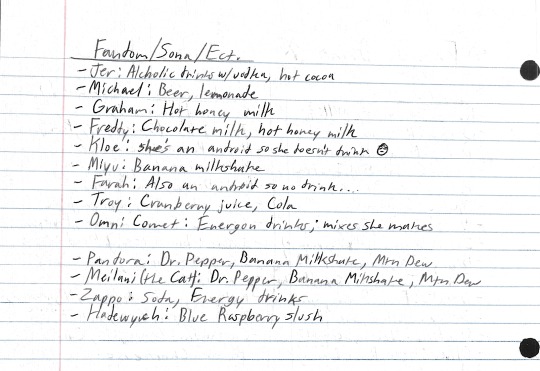 Fandom/Sona/Ect.
- Jer: Alcholic drinks w/vodka, hot cocoa
- Michael: Beer, lemonade
- Graham: Hot honey milk
- Fredty: Chocolate milk, hot honey milk
- Kloe: she's an android so she doesn't drink
- Miyu: Banana milkshake
- Farah: Also an android so no drink...
- Troy: Cranberry juice, Cola
- Omni Comet: Energon drinks; mixes she makes
- Pandora: Dr. Pepper, Banana Milkshake, Mtn Dew
- Meilani (the Cat): Dr. Pepper, Banana Milkshake, Mtn Dew
- Zappo: Soda, Energy drinks
- Hadewych: Blue Raspberry slush